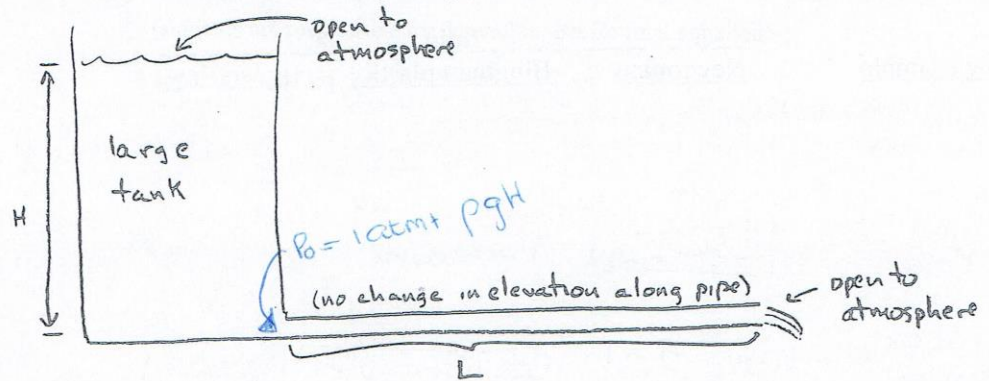 open to
atmosphere
large
tank
H
P₀ = 1atm+ ρgH
(no change in elevation along pipe)
open to
atmosphere
L